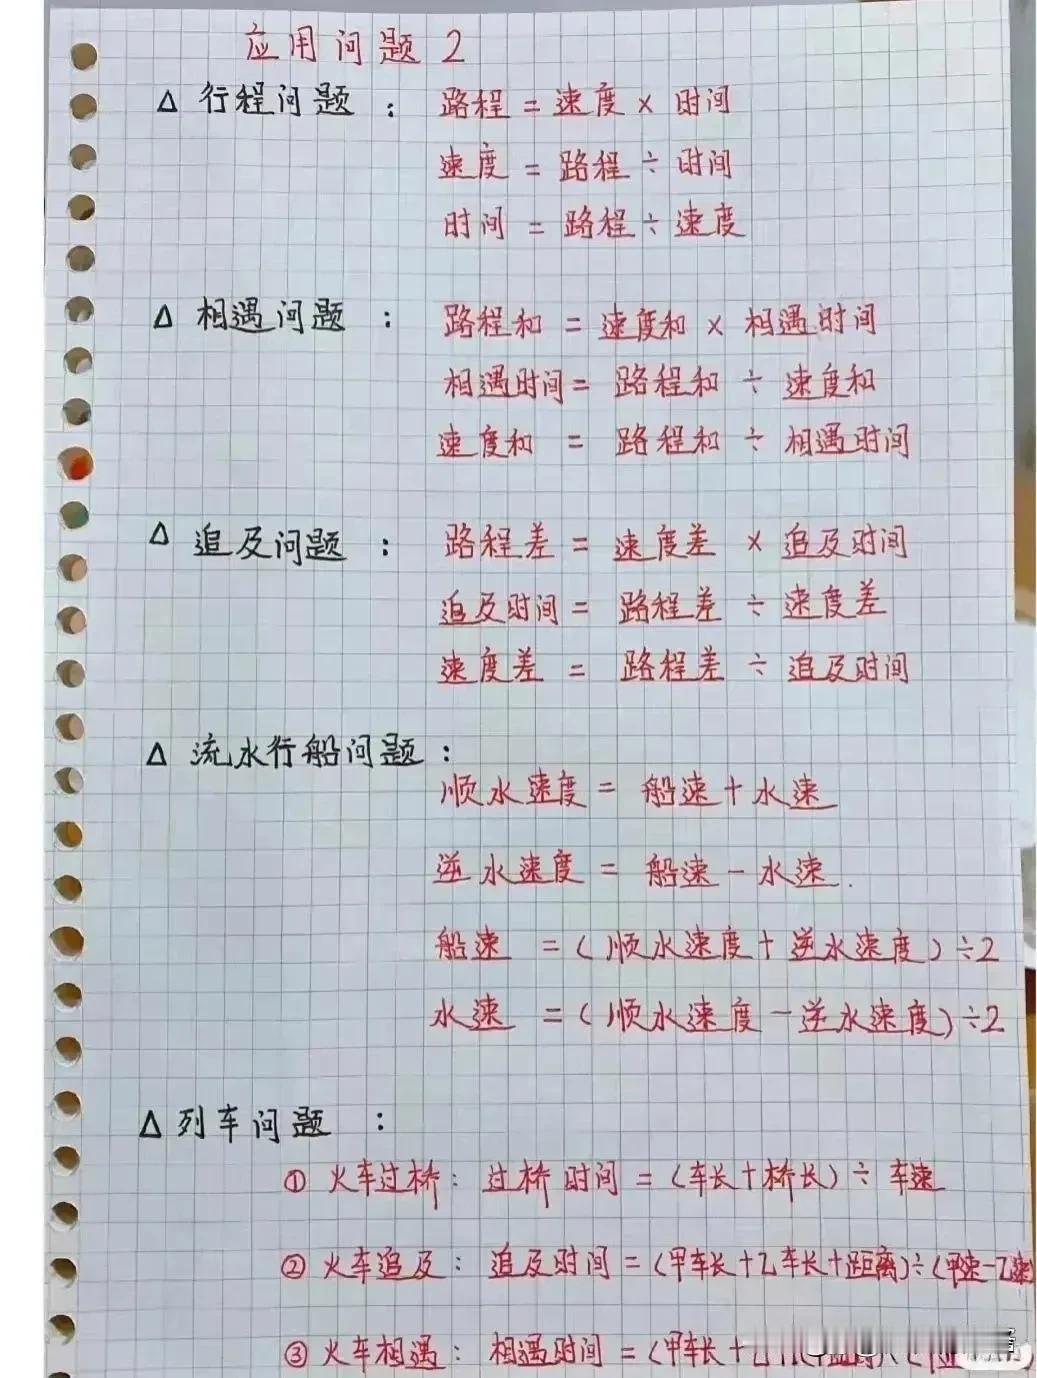 应用问题2
△ 行程问题： 路程 = 速度 × 时间
速度 = 路程 ÷ 时间
时间 = 路程 ÷ 速度
△ 相遇问题： 路程和 = 速度和 × 相遇时间
相遇时间 = 路程和 ÷ 速度和
速度和 = 路程和 ÷ 相遇时间
△ 追及问题： 路程差 = 速度差 × 追及时间
追及时间 = 路程差 ÷ 速度差
速度差 = 路程差 ÷ 追及时间
△ 流水行船问题：
顺水速度 = 船速 + 水速
逆水速度 = 船速 - 水速.
船速 =(顺水速度 + 逆水速度)÷2
水速 =(顺水速度 - 逆水速度)÷2
△ 列车问题：
① 火车过桥：过桥时间 =(车长 + 桥长)÷ 车速
② 火车追及：追及时间 =(甲车长 + 乙车长 + 距离)÷(甲速 - 乙速)
③ 火车相遇：相遇时间 =(甲车长 +